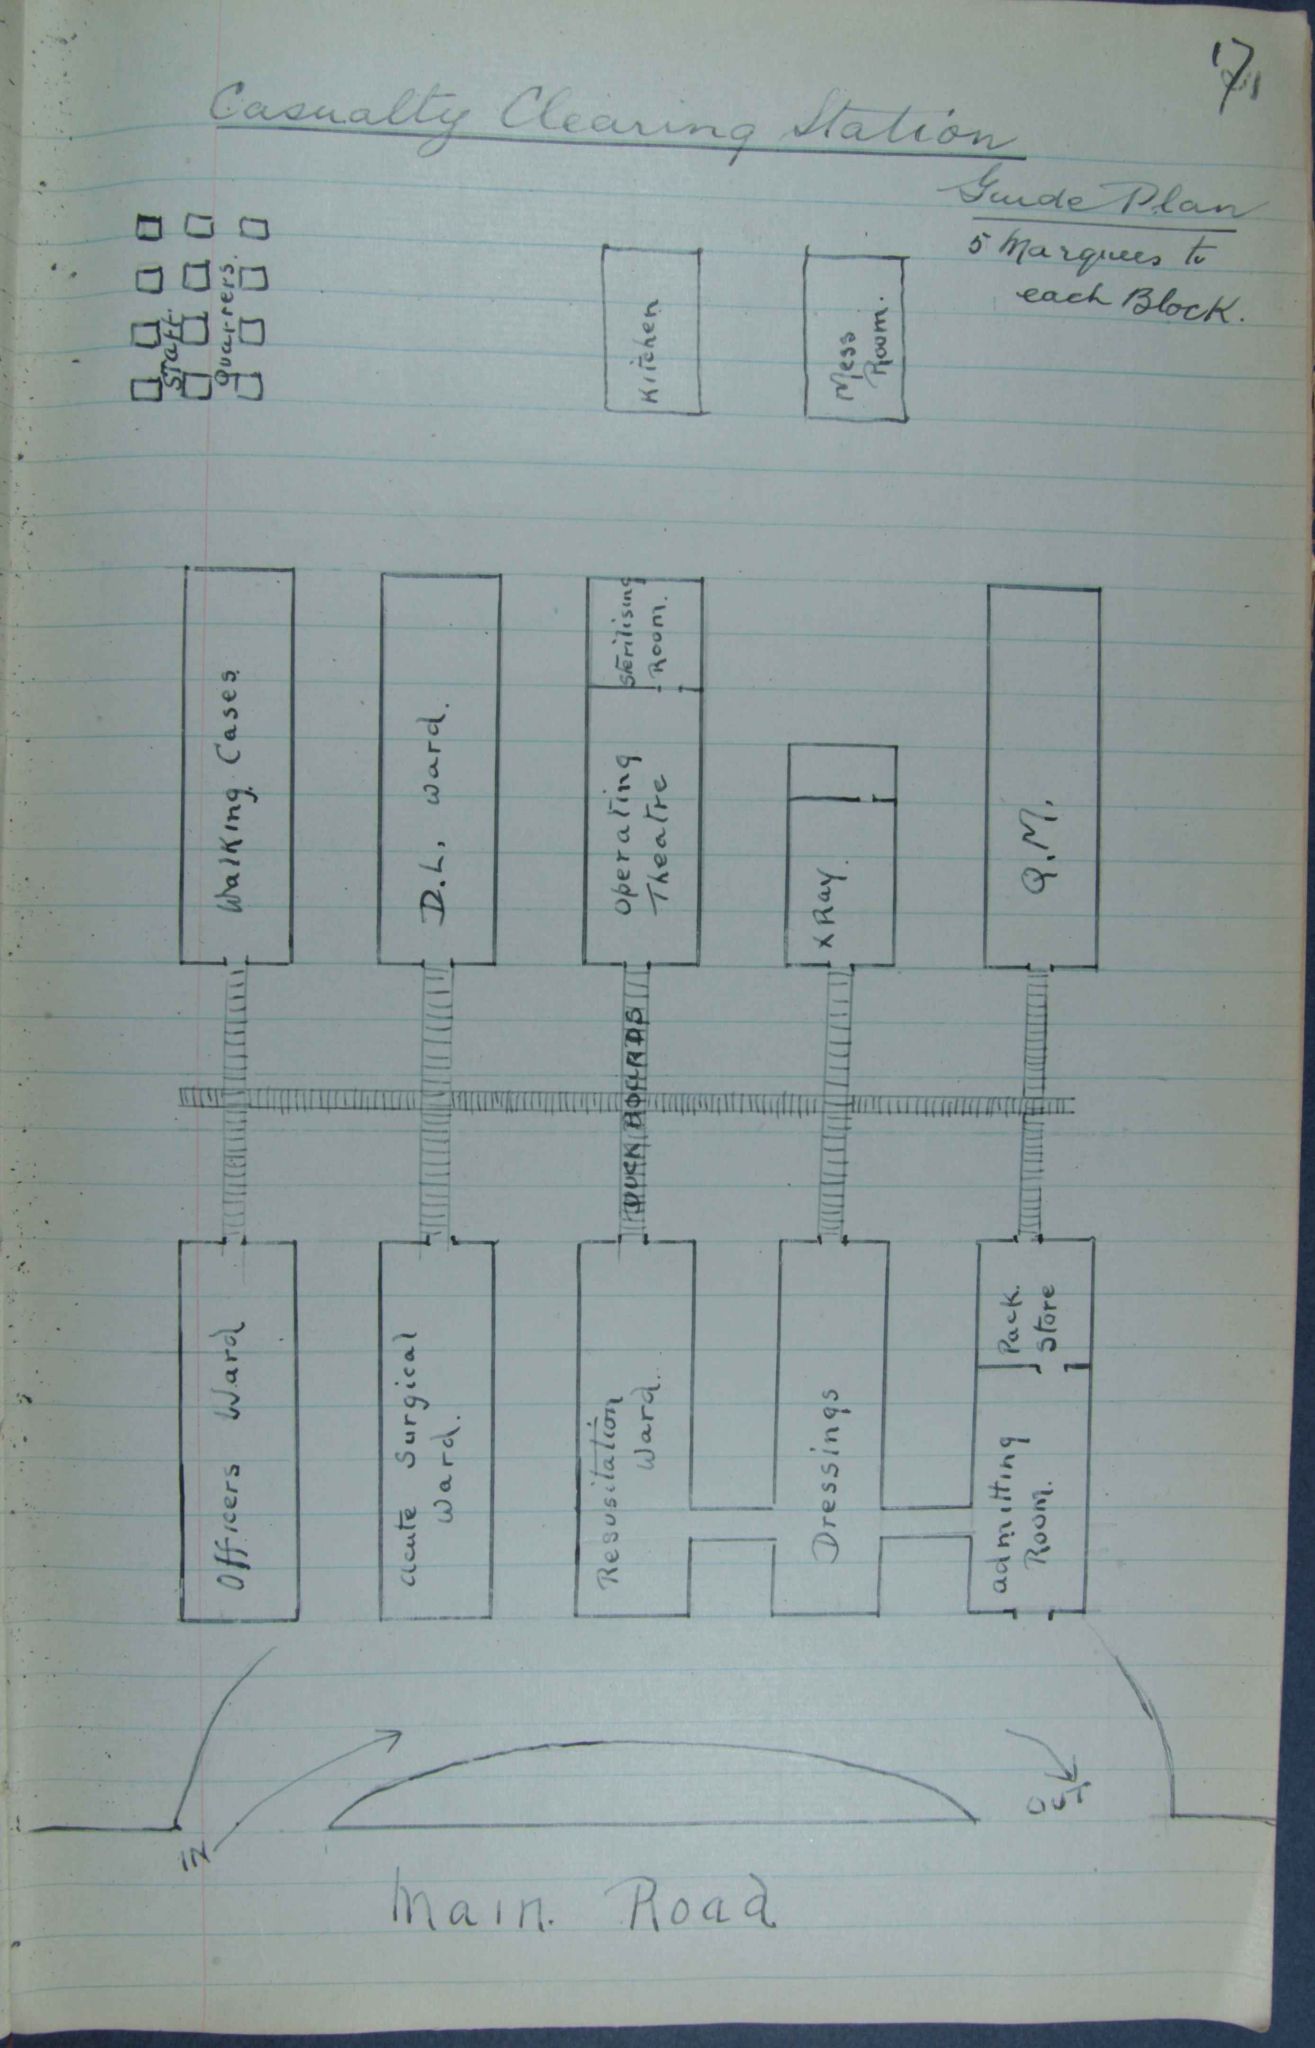 Casualty Clearing Station
Guide Plan
5 Marquees to
each Block.
Staff
Quarters.
Kitchen
Mess
Room.
Walking Cases
D.L. Ward.
Operating
Theatre
Sterilising
Room.
X Ray.
Q.M.
DUCK BOARDS
Officers Ward
Acute Surgical
Ward.
Resusitation
Ward.
Dressings
Admitting
Room.
Pack.
Store
IN
OUT
Main. Road